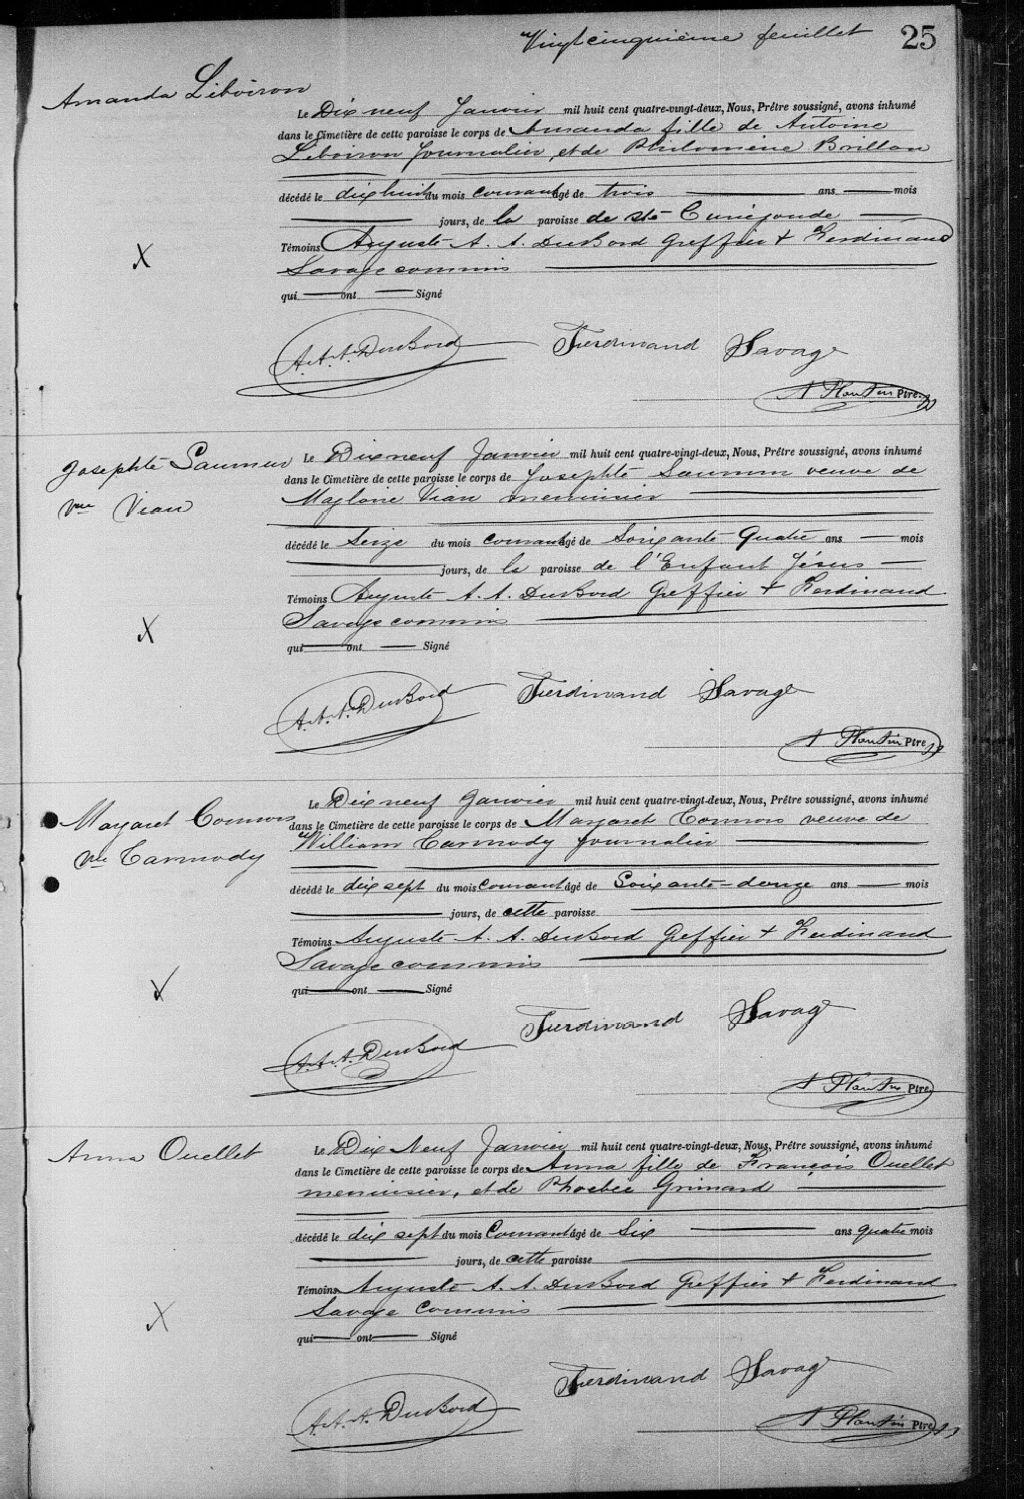 Vingt cinquième feuillet 25
Amanda Liboiron
Le Dix neuf Janvier mil huit cent quatre-vingt-deux, Nous, Prêtre soussigné, avons inhumé
dans le Cimetière de cette paroisse le corps de Amanda fille de Antoine
Liboiron Journalier, et de Philomène Brillon
décédé le dix huit du mois courant âgé de trois ans mois
jours, de la paroisse de Ste Cunégonde
Témoins Auguste A. A. DuBord Greffier + Ferdinand
Savage commis
qui ont Signé
A. A. A. DuBord Ferdinand Savage
A Plantin Ptre.
Josephte Saumur
Vve Viau
Le Dix neuf Janvier mil huit cent quatre-vingt-deux, Nous, Prêtre soussigné, avons inhumé
dans le Cimetière de cette paroisse le corps de Josephte Saumur veuve de
Magloire Viau menuisier
décédé le Seize du mois courant âgé de Soixante Quatre ans mois
jours, de la paroisse de l'Enfant Jésus
Témoins Auguste A. A. DuBord Greffier + Ferdinand
Savage commis
qui ont Signé
A. A. A. DuBord Ferdinand Savage
A Plantin Ptre
Margaret Connors
Vve Carmody
Le Dix neuf Janvier mil huit cent quatre-vingt-deux, Nous, Prêtre soussigné, avons inhumé
dans le Cimetière de cette paroisse le corps de Margaret Connors veuve de
William Carmody journalier
décédé le dix sept du mois Courant âgé de Soixante-douze ans mois
jours, de cette paroisse
Témoins Auguste A. A. DuBord Greffier + Ferdinand
Savage commis
qui ont Signé
A. A. A. DuBord Ferdinand Savage
A Plantin Ptre.
Anna Ouellet
Le Dix Neuf Janvier mil huit cent quatre-vingt-deux, Nous, Prêtre soussigné, avons inhumé
dans le Cimetière de cette paroisse le corps de Anna fille de François Ouellet
menuisier, et de Phoebée Grimard
décédé le dix sept du mois Courant âgé de Six ans quatre mois
jours, de cette paroisse
Témoins Auguste A. A. DuBord Greffier + Ferdinand
Savage Commis
qui ont Signé
A. A. A. DuBord Ferdinand Savage
A Plantin Ptre